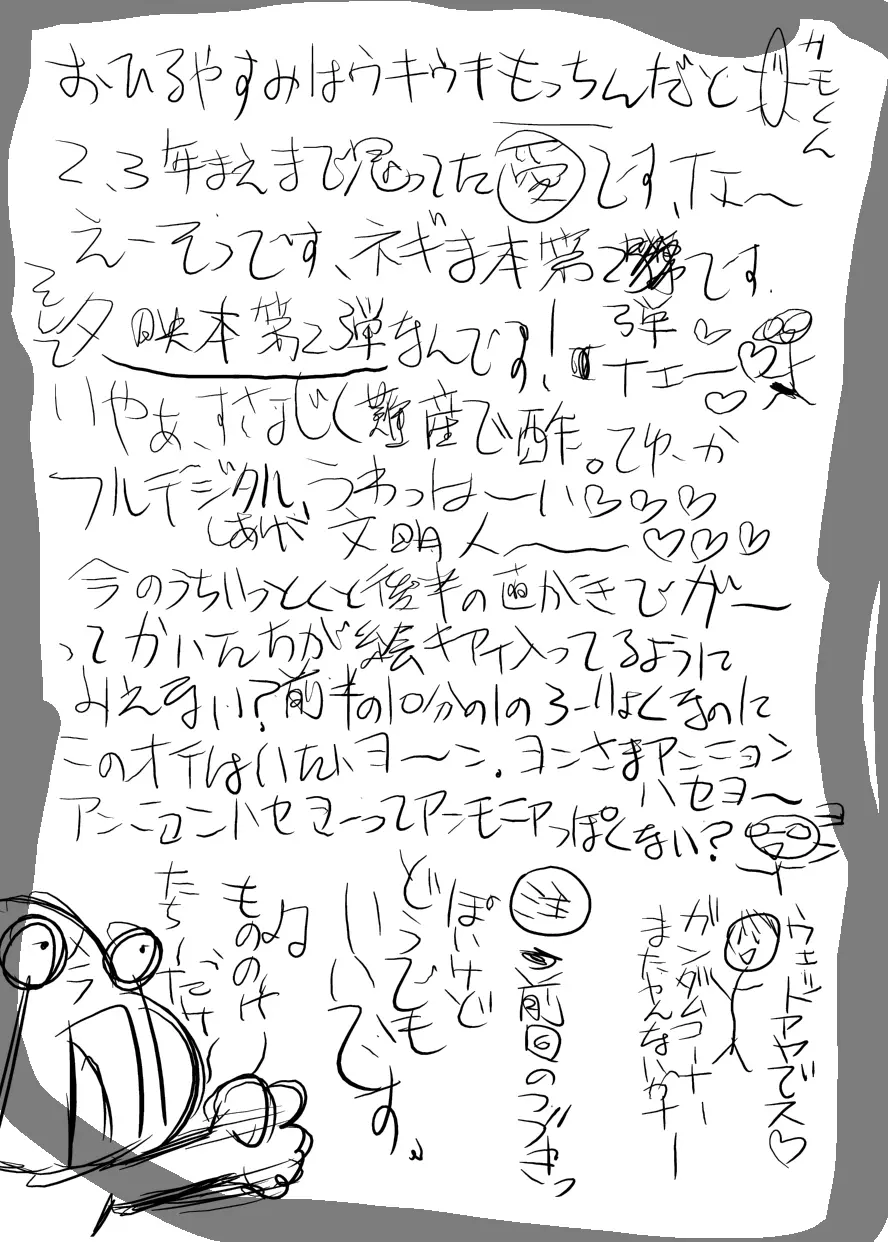 おひるやすみはウキウキもっちんだと
カモくん
2、3年まえまで思ってた愛です、イェ〜
えーそうです、ネギま本第2です.
弾
そして
映本第2弾なんです!
イェー
いやぁ、すさまじく難産で酢。てゆーか
フルデジタル、うわっはーい♡♡♡
しあげが 文明人〜♡♡♡
今のうちいっとくと後半の
がー
ってかいたちが絵キアイ入ってるように
みえまい?前半の10分の1のろーりょくなのに
このオイはいたいヨーン.ヨンさまアンニョン
ハセヨ〜
アンニョンハセヨーってアンモニアっぽくない?
ウェッドアヤでス♡
ガンダムコーナー
まだやんないかナー
前回のつづきっ
ぽいけど
どうでも
いいです。
もののけ
たち〜だけ